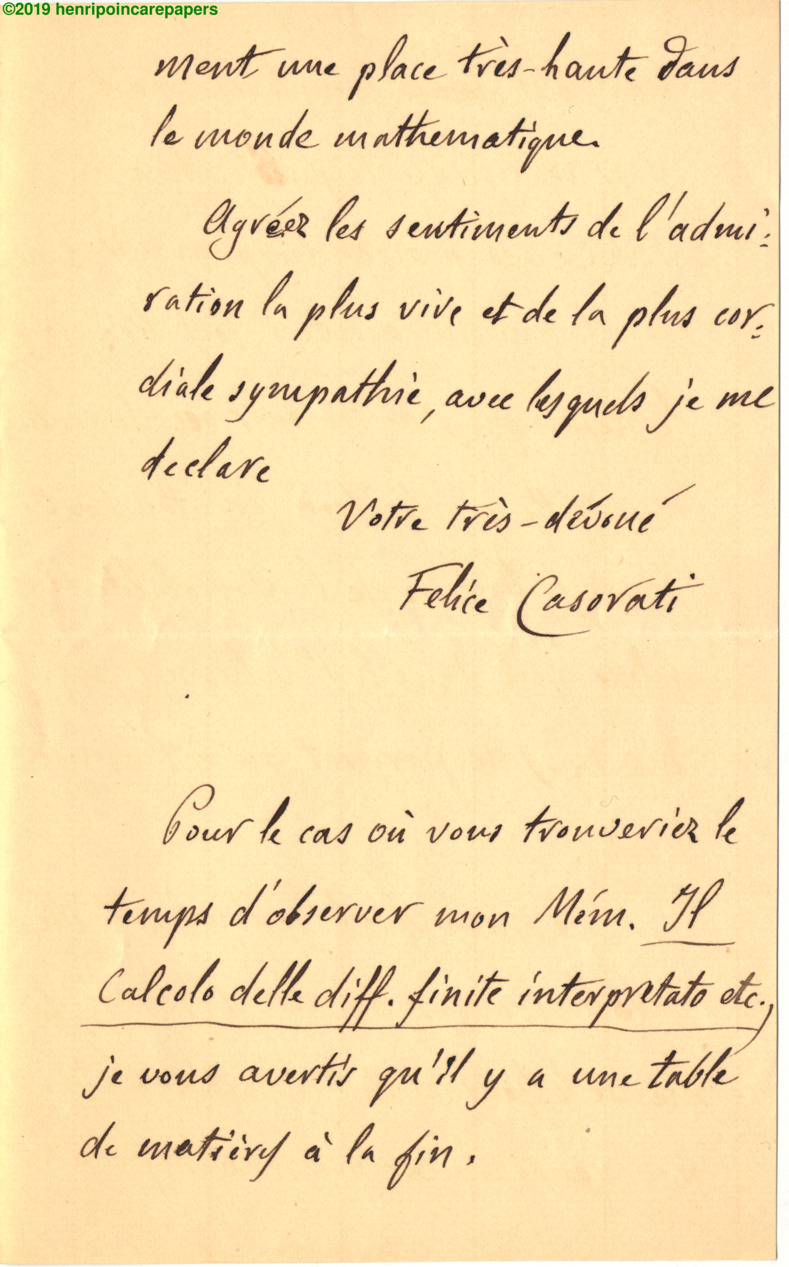 ©2019 henripoincarepapers
ment une place très-haute dans
le monde mathematique.
Agréez les sentiments de l'admi:
ration la plus vive et de la plus cor:
diale sympathie, avec lesquels je me
declare
Votre très-dévoué
Felice Casorati
Pour le cas où vous trouveriez le
temps d'observer mon Mém. Il
Calcolo delle diff. finite interpretato etc.,
je vous avertis qu'il y a une table
de matières à la fin.